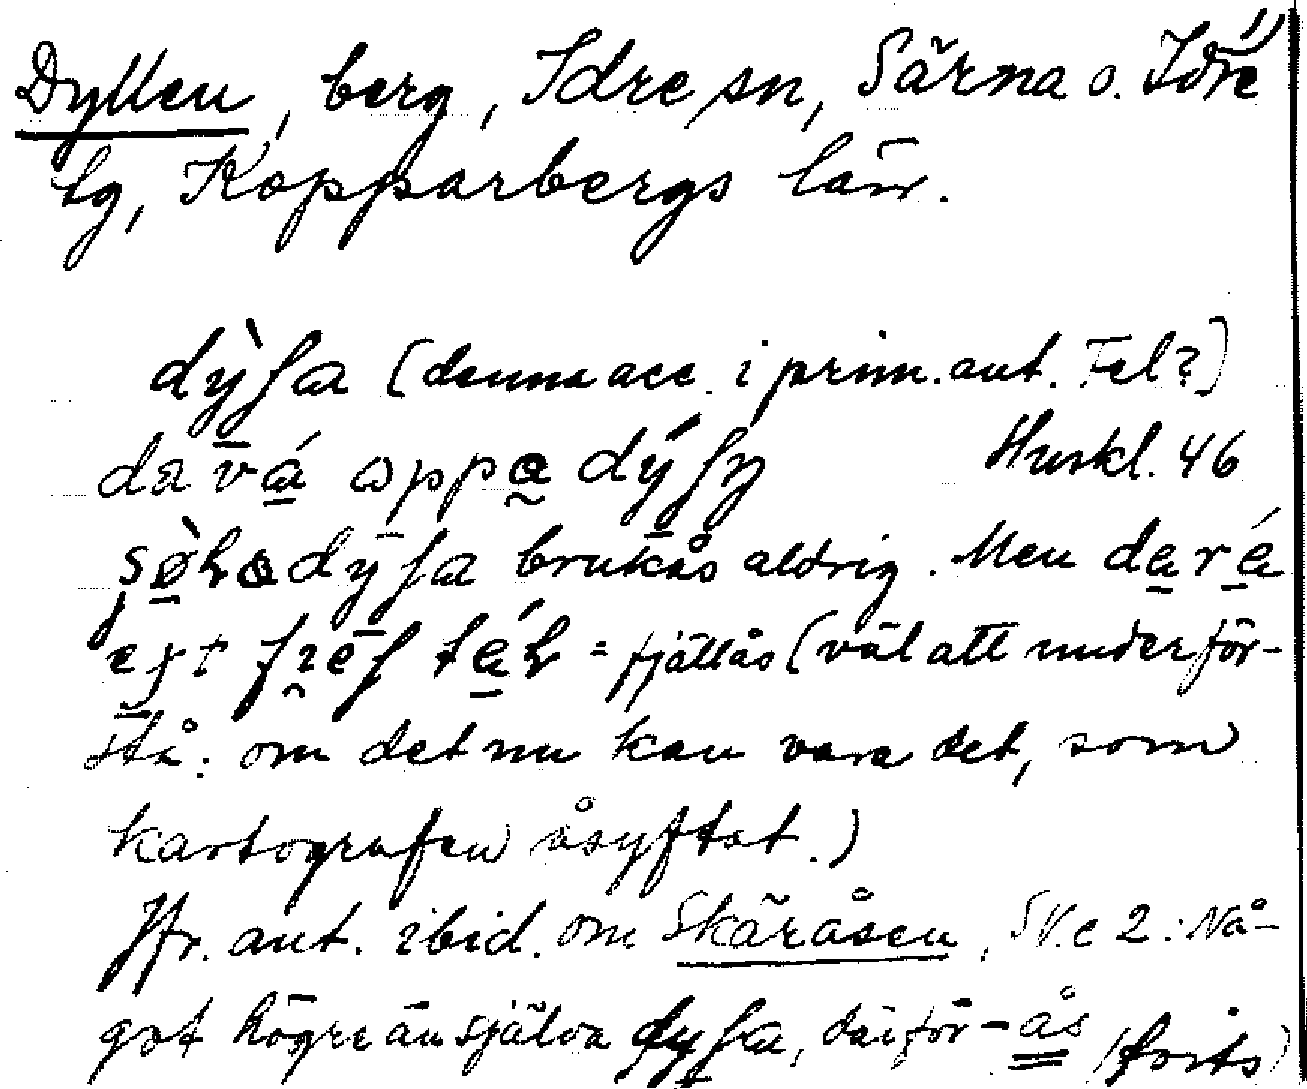 Dyllen, berg, Idre sn, Särna o. Idre
tg, Kopparbergs län.
(denna acc. i prim. ant. Fel?)
Huskl. 46
brukas aldrig. Men
= fjällås (väl att underför-
stå: om det nu kan vara det, som
kartografen åsyftat.)
Jfr. ant. ibid. om Skäråsen, SV.c 2: Nå-
got högre än själva, därför - ås (forts)